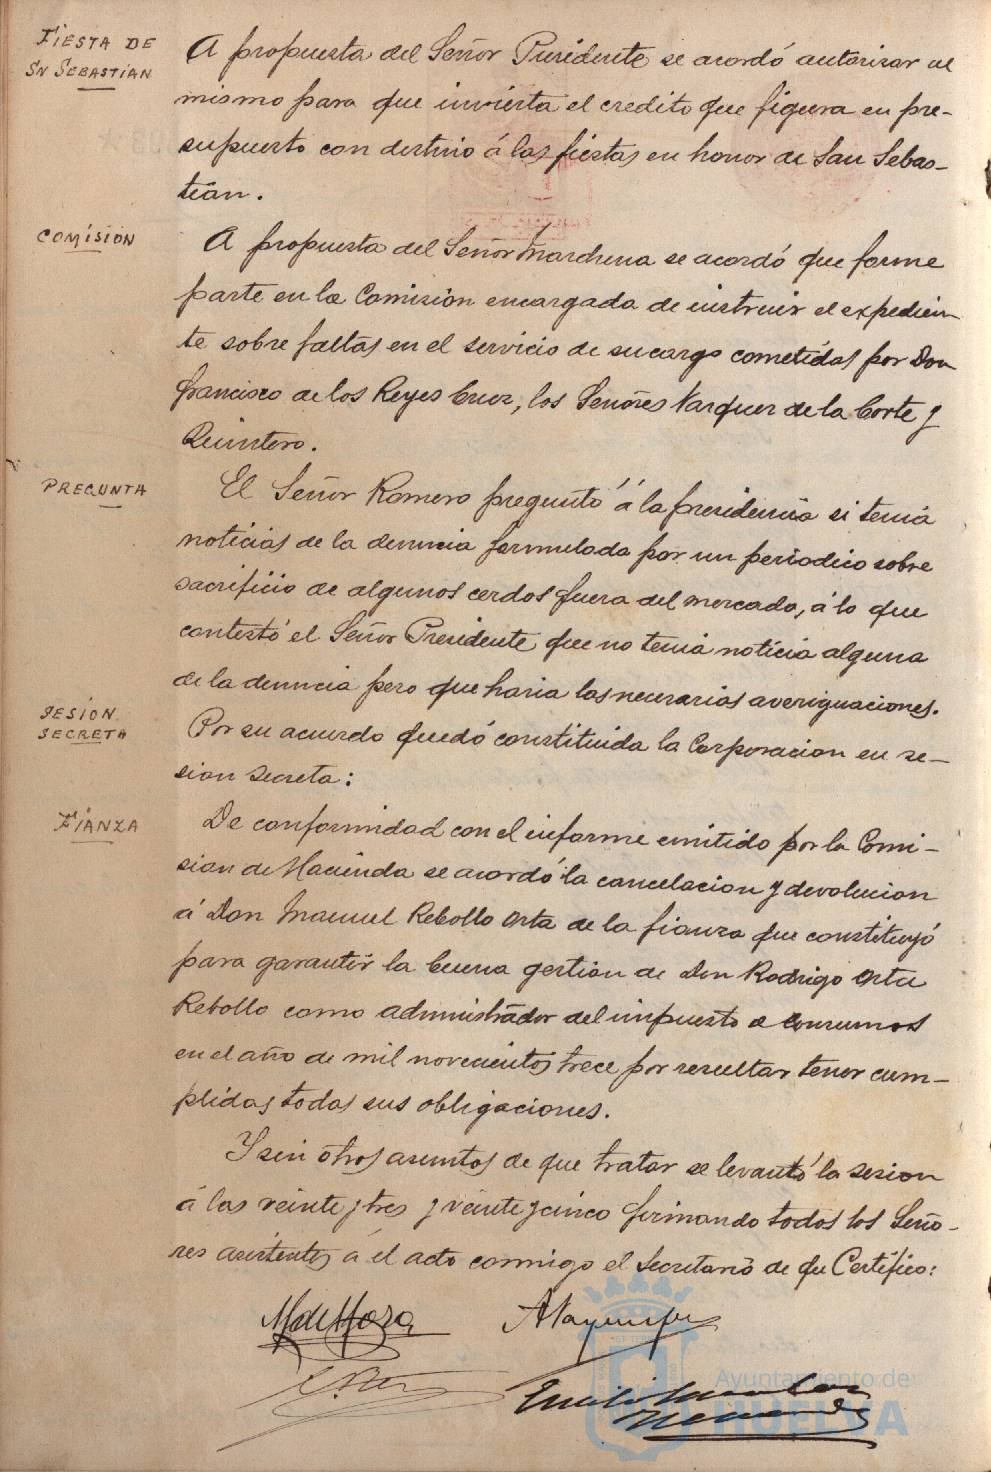 FIESTA DE
SN SEBASTIAN
A propuesta del Señor Presidente se acordó autorizar al
mismo para que invierta el credito que figura en pre-
supuesto con destino á las fiestas en honor de San Sebas-
tián.
COMISIÓN
A propuesta del Señor Marchena se acordó que forme
parte en la Comisión encargada de instruir el expedien-
te sobre faltas en el servicio de su cargo cometidas por Don
Francisco de los Reyes Cruz, los Señores Vazquez de la Corte y
Quintero.
PREGUNTA
El Señor Romero preguntó á la presidencia si tenia
noticias de la denuncia formulada por un periodico sobre
sacrificio de algunos cerdos fuera del mercado, á lo que
contestó el Señor Presidente que no tenia noticia alguna
de la denuncia pero que haria las necesarias averiguaciones.
SESIÓN
SECRETA
Por su acuerdo quedó constituida la Corporacion en se-
sion secreta:
FIANZA
De conformidad con el informe emitido por la Comi-
sion de Hacienda se acordó la cancelacion y devolucion
á Don Manuel Rebollo Orta de la fianza que constituyó
para garantir la buena gestion de Don Rodrigo Orta
Rebollo como administrador del impuesto de Consumos
en el año de mil novecientos trece por resultar tener cum-
plidas todas sus obligaciones.
Y sin otros asuntos de que tratar se levantó la sesion
á las veinte y tres y veinte y cinco firmando todos los Seño-
res asistentes á el acto conmigo el Secretario de que Certifico:
M de Mora
Ayuntamiento de
HUELVA